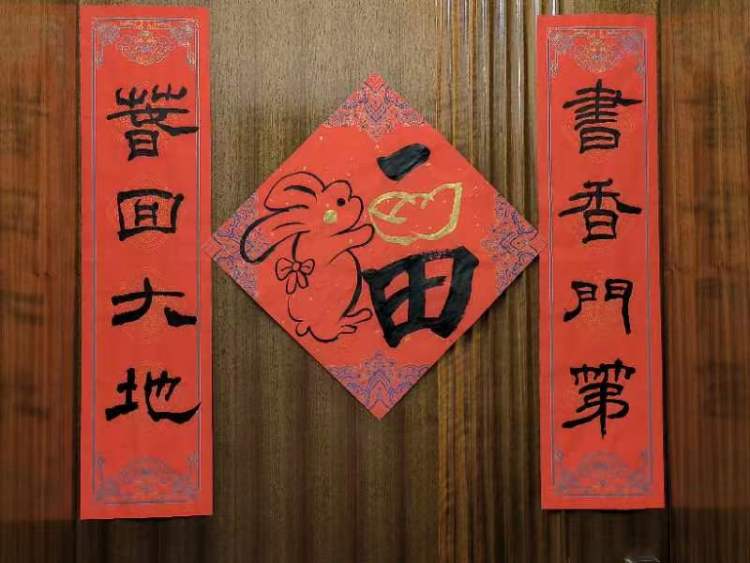 書香門第
福
春回大地